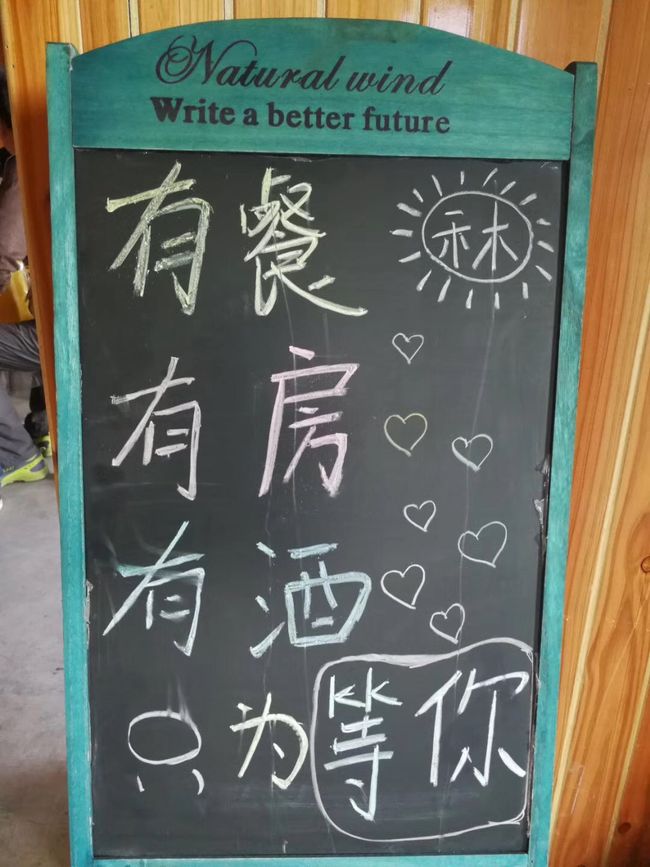 Natural wind
Write a better future
禾木
有餐
有房
有酒
只为等你